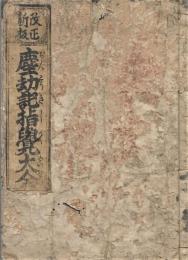 改正
新板
塵劫記指南大全